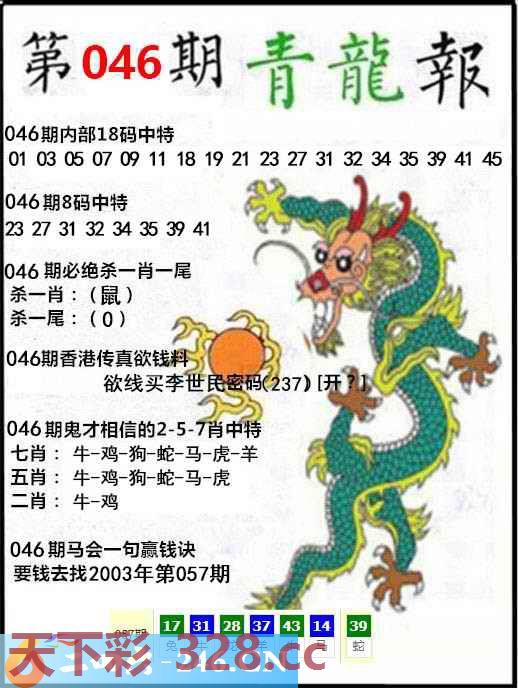 第046期 青龍報
046期内部18码中特
01 03 05 07 09 11 18 19 21 23 27 31 32 34 35 39 41 45
046期8码中特
23 27 31 32 34 35 39 41
046期必绝杀一肖一尾
杀一肖：(鼠)
杀一尾：(0)
046期香港传真欲钱料
欲线买李世民密码(237)[开?]
046期鬼才相信的2-5-7肖中特
七肖：牛-鸡-狗-蛇-马-虎-羊
五肖：牛-鸡-狗-蛇-马-虎
二肖：牛-鸡
046期马会一句赢钱诀
要钱去找2003年第057期
17 31 28 37 43 14 39
马 蛇
天下彩-328.cc